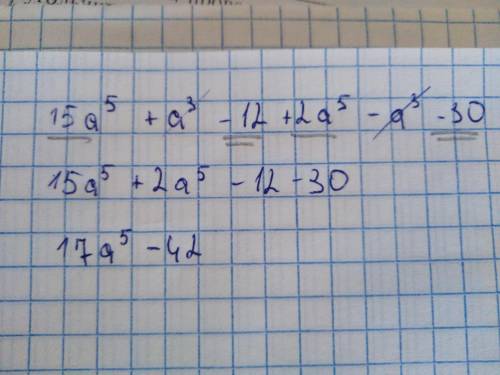 15a⁵ + a³ - 12 + 2a⁵ - a³ - 30
15a⁵ + 2a⁵ - 12 - 30
17a⁵ - 42